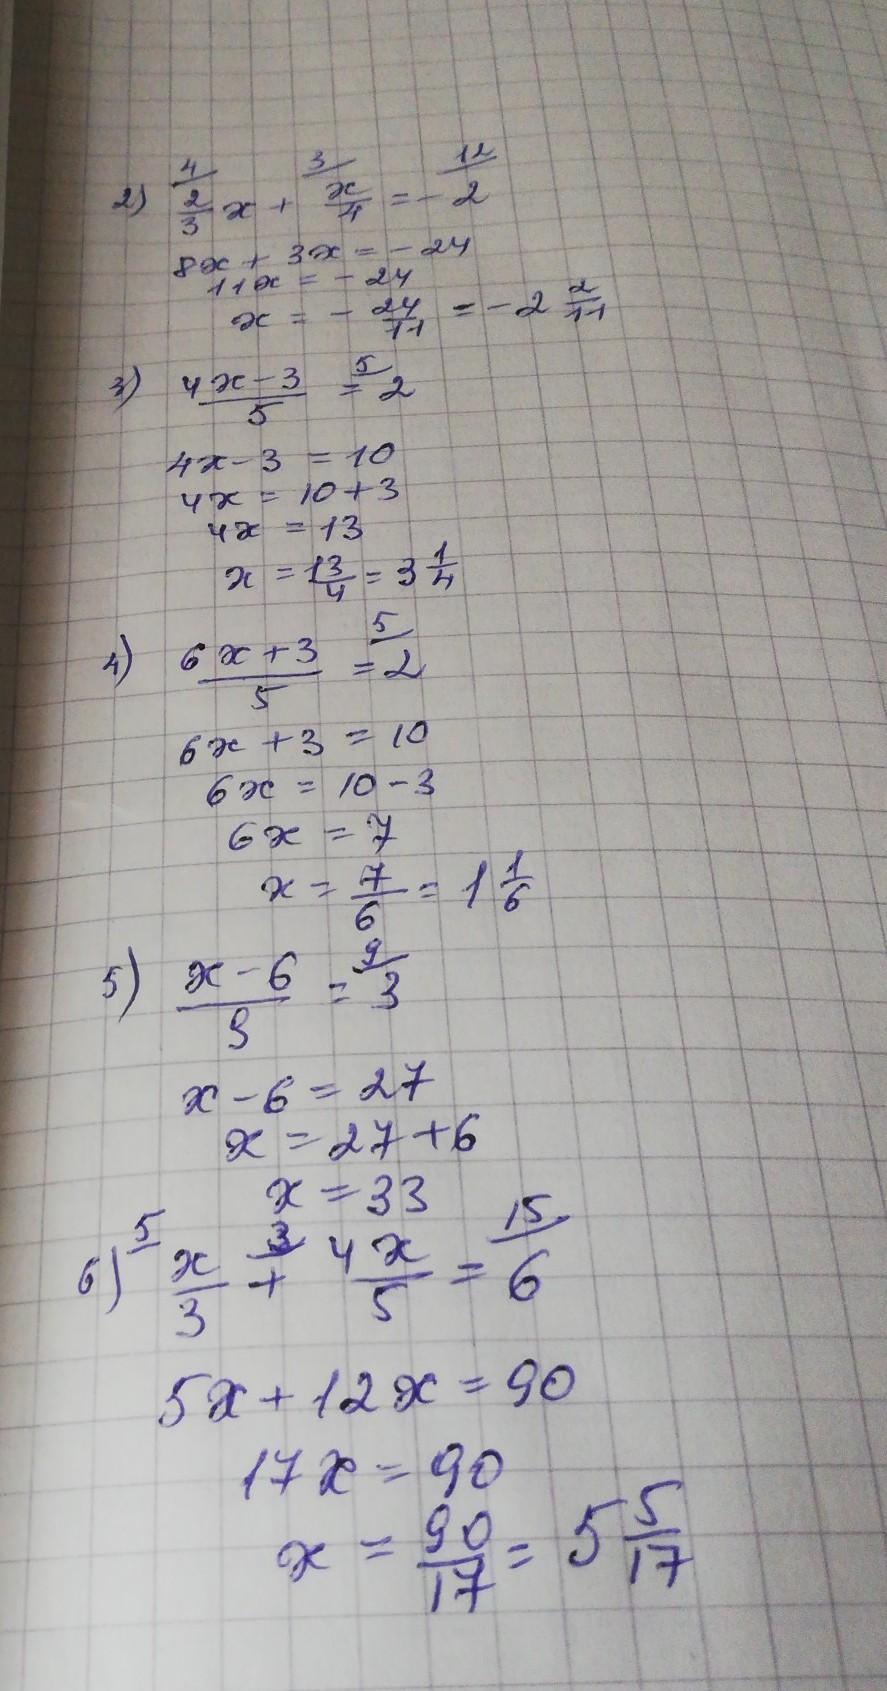 2) 4/ 2/3 x + 3/ x/4 = - 12/ 2
8x + 3x = - 24
11x = - 24
x = - 24/11 = - 2 2/11
3) 4x - 3 / 5 = 5/ 2
4x - 3 = 10
4x = 10 + 3
4x = 13
x = 13/4 = 3 1/4
4) 6x + 3 / 5 = 5/ 2
6x + 3 = 10
6x = 10 - 3
6x = 7
x = 7/6 = 1 1/6
5) x - 6 / 9 = 9/ 3
x - 6 = 27
x = 27 + 6
x = 33
6) 5/ x/3 + 3/ 4x/5 = 15/ 6
5x + 12x = 90
17x = 90
x = 90/17 = 5 5/17